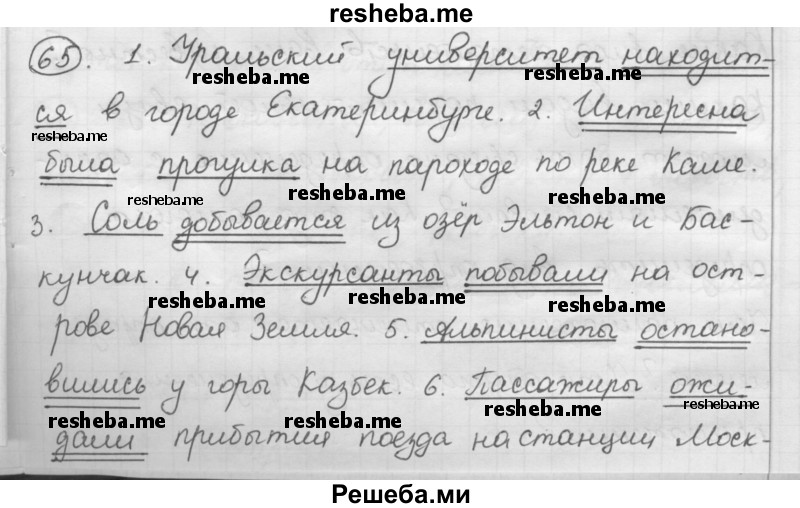 resheba.me
65. 1. Уральский университет находит-
resheba.me resheba.me
ся в городе Екатеринбурге. 2. Интересна
resheba.me resheba.me
была прогулка на пароходе по реке Каме.
resheba.me resheba.me resheba.me
3. Соль добывается из озёр Эльтон и Бас-
кунчак. 4. Экскурсанты побывали на ост-
resheba.me resheba.me resheba.me
рове Новая Земля. 5. Альпинисты остано-
вились у горы Казбек. 6. Пассажиры ожи-
resheba.me resheba.me resheba.me resheba.me
дали прибытия поезда на станции Моск-
Решеба.ми